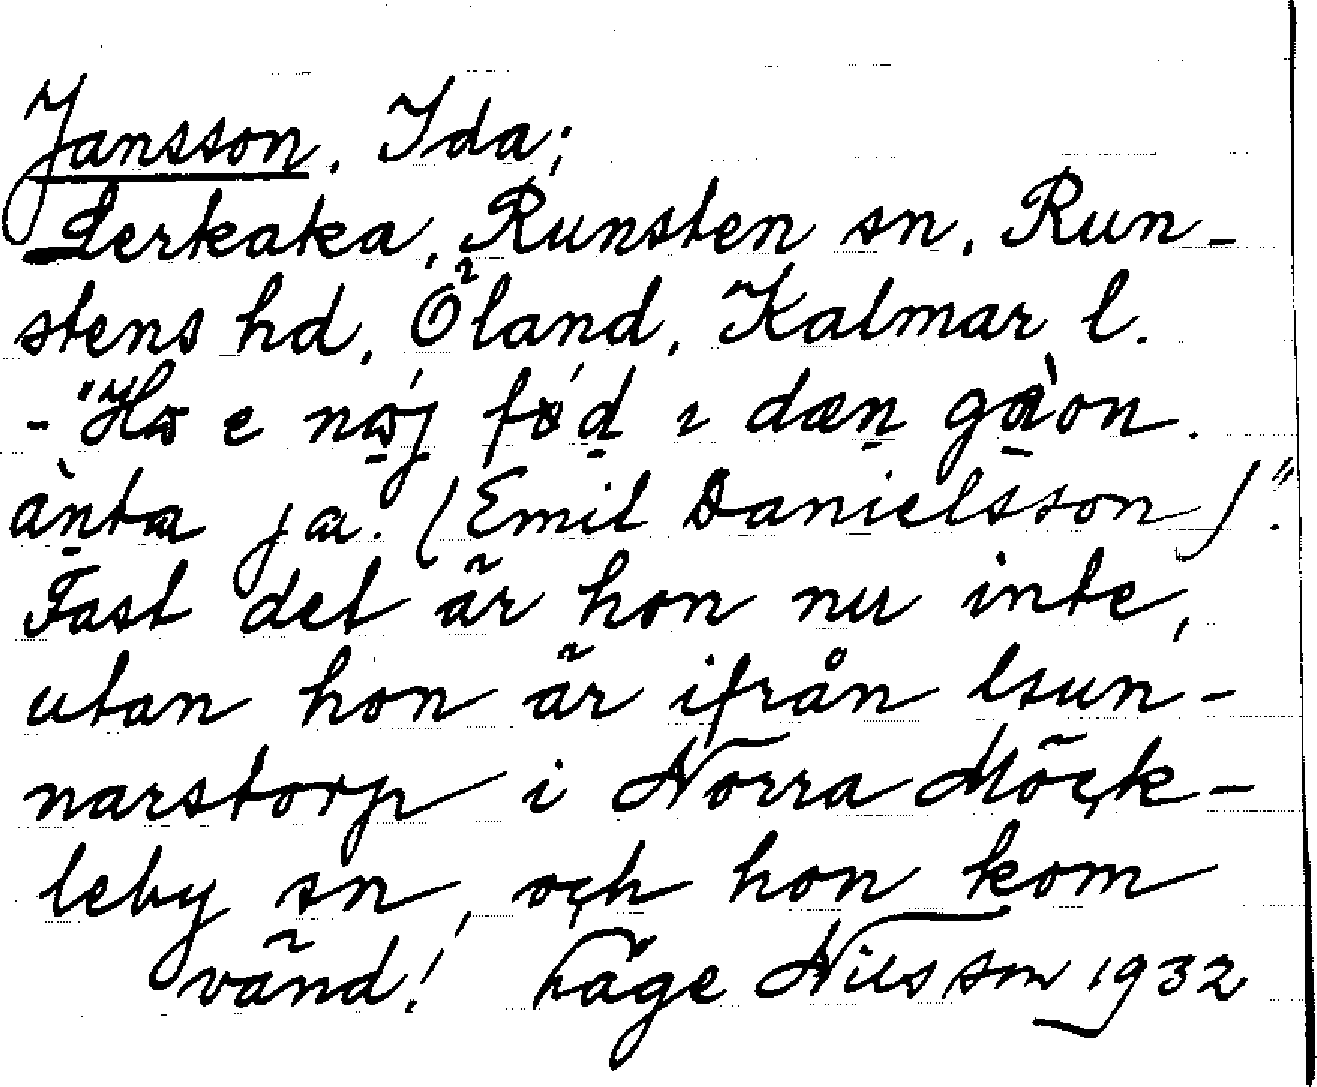 Jansson, Ida;
Lerkaka, Runsten sn, Run-
stens hd, Öland, Kalmar l.
-"Ho e noj fød ı dæn gaon.
ànta ja. (Emil Danielsson)".
Fast det är hon nu inte,
utan hon är ifrån Gun-
narstorp i Norra Möck-
leby sn, och hon kom
vänd! Håge Nilsson 1932